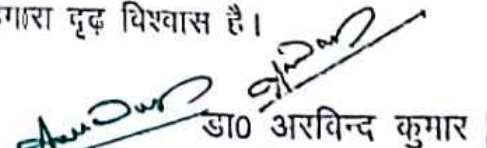 हमारा दृढ़ विश्वास है।
डा0 अरविन्द कुमार